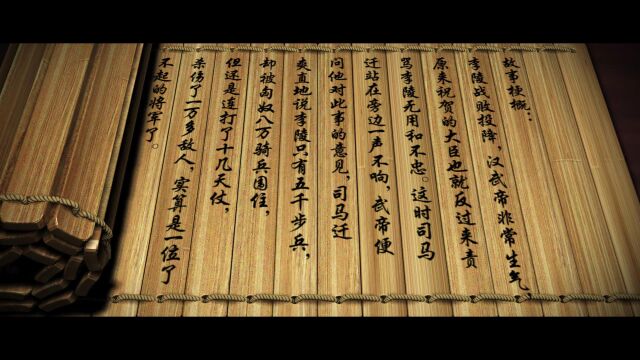 故事梗概：
李陵战败投降，汉武帝非常生气，
原来祝贺的大臣也就反过来责
骂李陵无用和不忠。这时司马
迁站在旁边一声不响，武帝便
问他对此事的意见，司马迁
爽直地说李陵只有五千步兵，
却被匈奴八万骑兵围住，
但还是连打了十几天仗，
杀伤了一万多敌人，实算是一位了
不起的将军了。